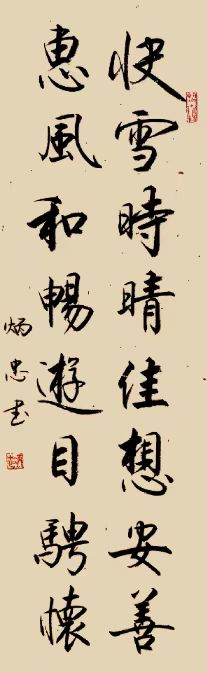 快雪時晴佳想安善
惠風和暢遊目騁懷
炳忠书